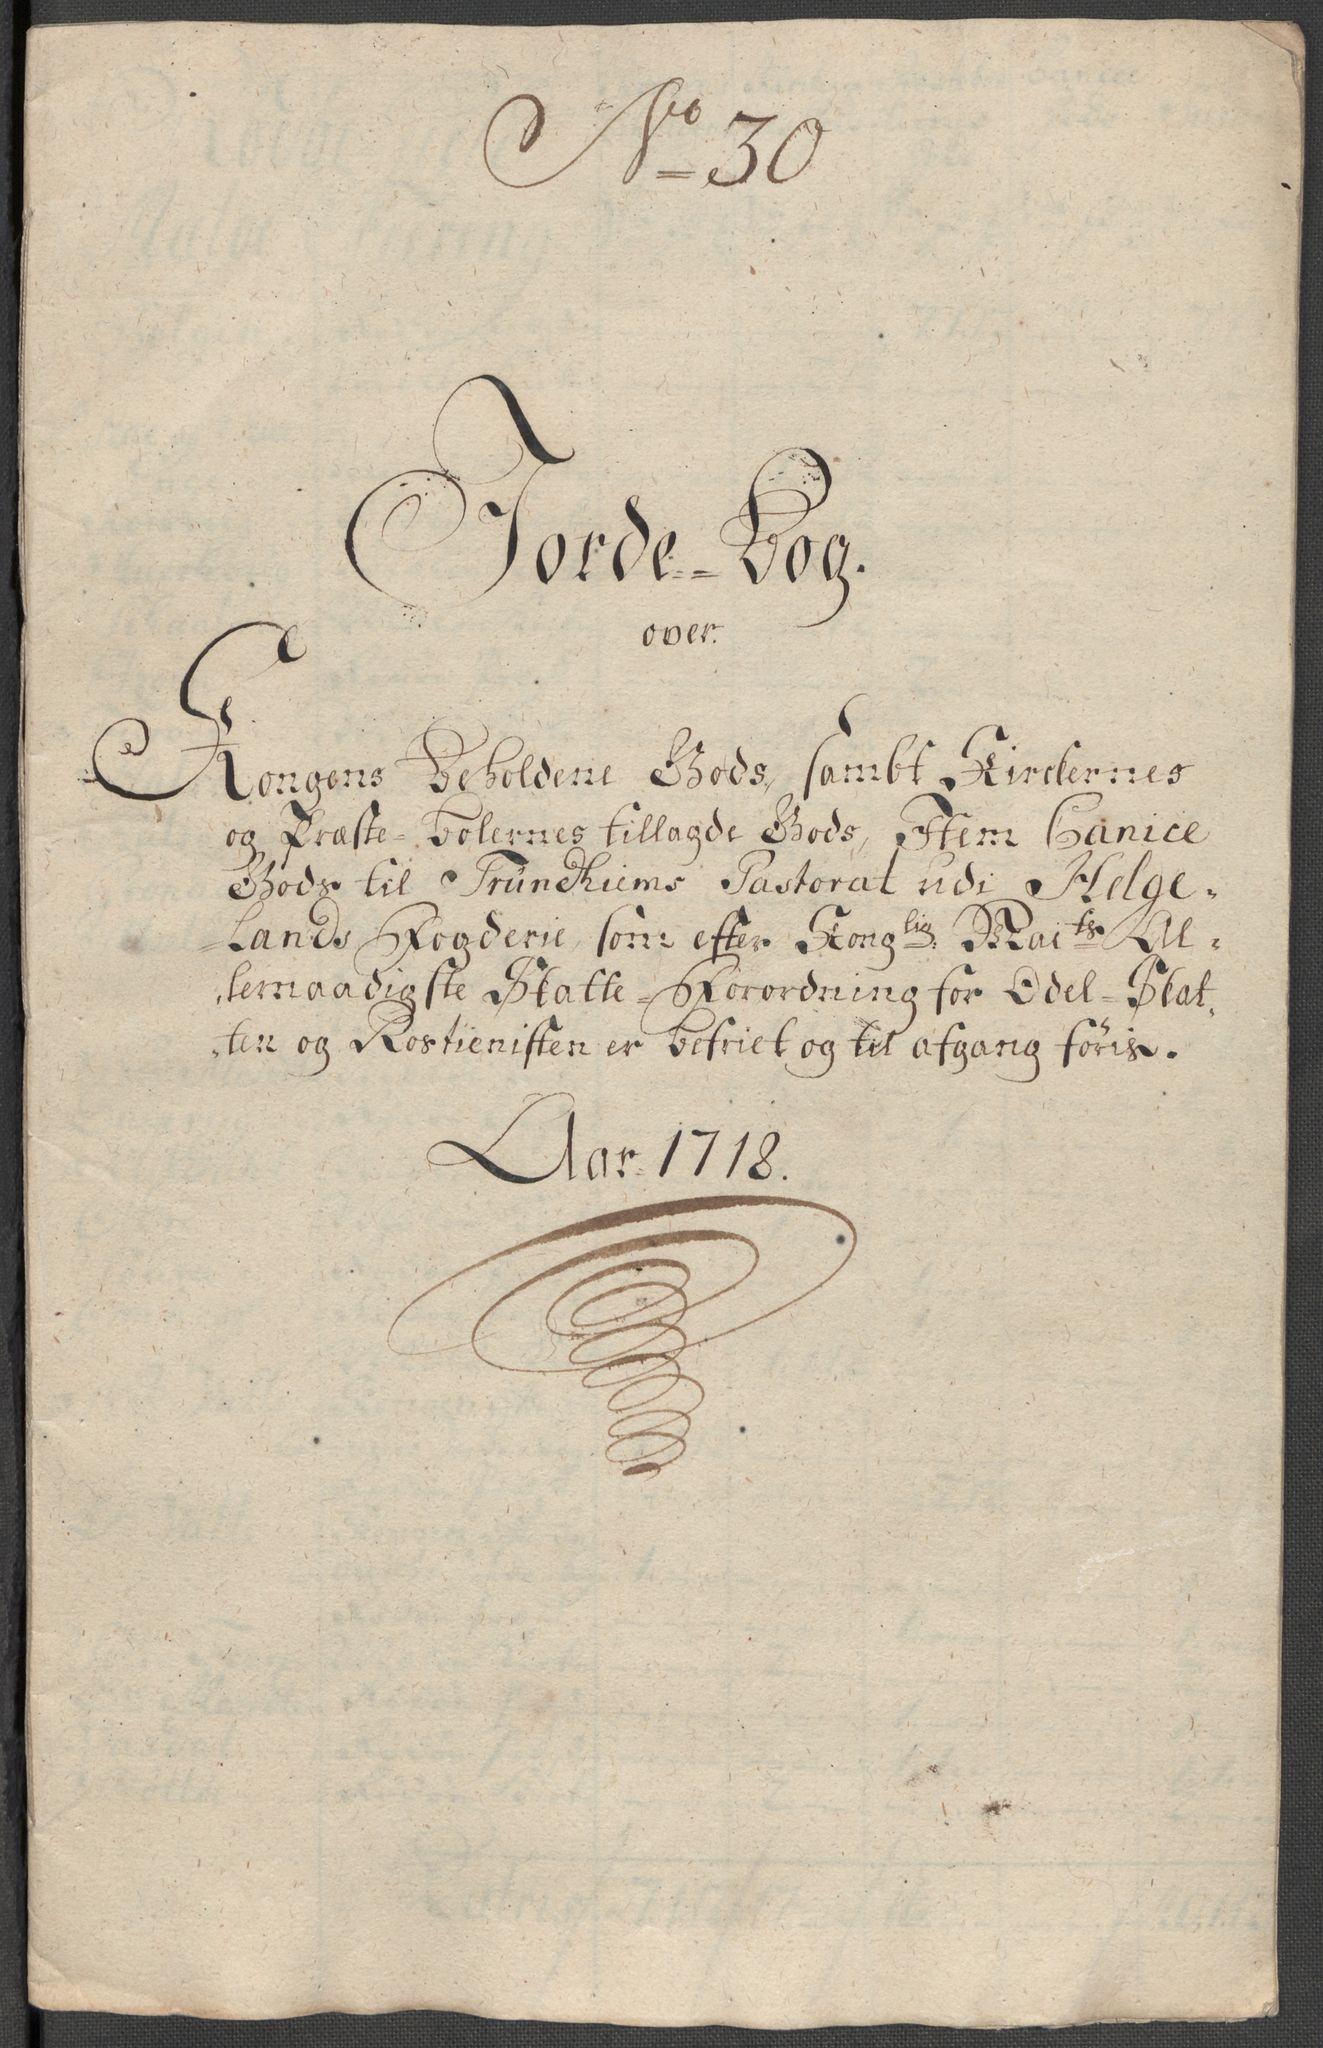 No 30
Jorde-Bog.
over
Kongens Beholdene Gods, sambt Kirckernes
og Præste-Bolernes tillagde Gods, Item Canice
Gods til Trundhiems Pastorat udi Helge-
lands Fogderie, som efter Konglig Maits Al-
lernaadigste Skatte-Forordning for Odel-Skat-
ten og Rostienisten er befriet og til afgang føris.
Aar 1718.